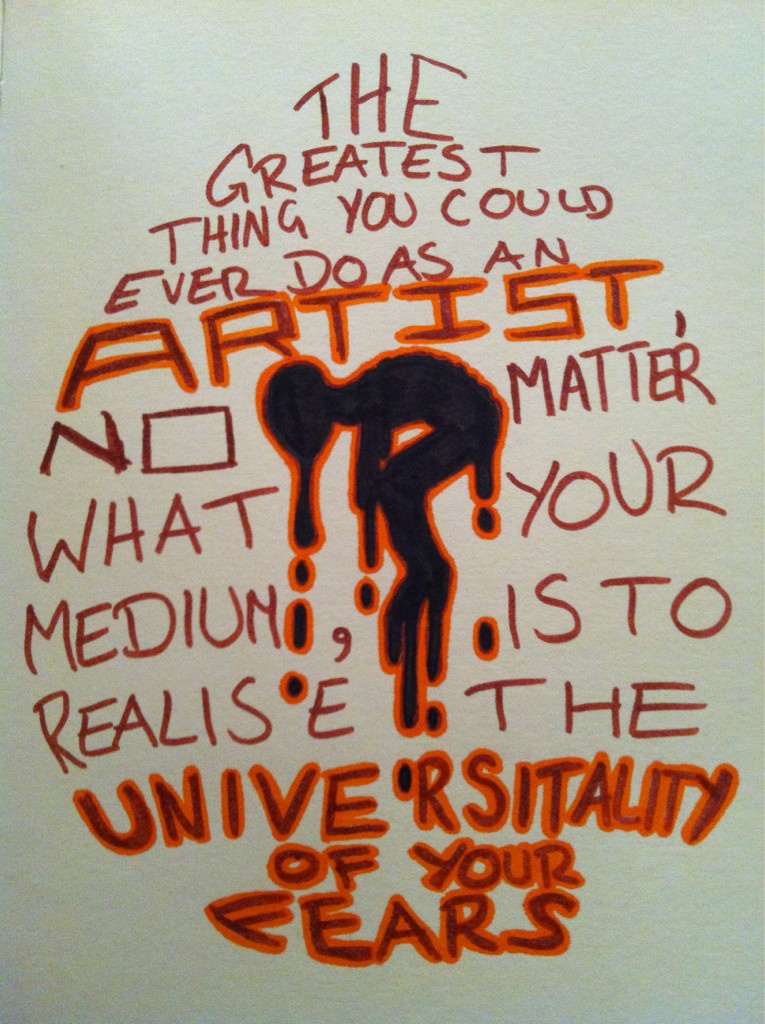 THE
GREATEST
THING YOU COULD
EVER DO AS AN
ARTIST,
NO MATTER
WHAT YOUR
MEDIUM, IS TO
REALISE THE
UNIVERSITALITY
OF YOUR
FEARS